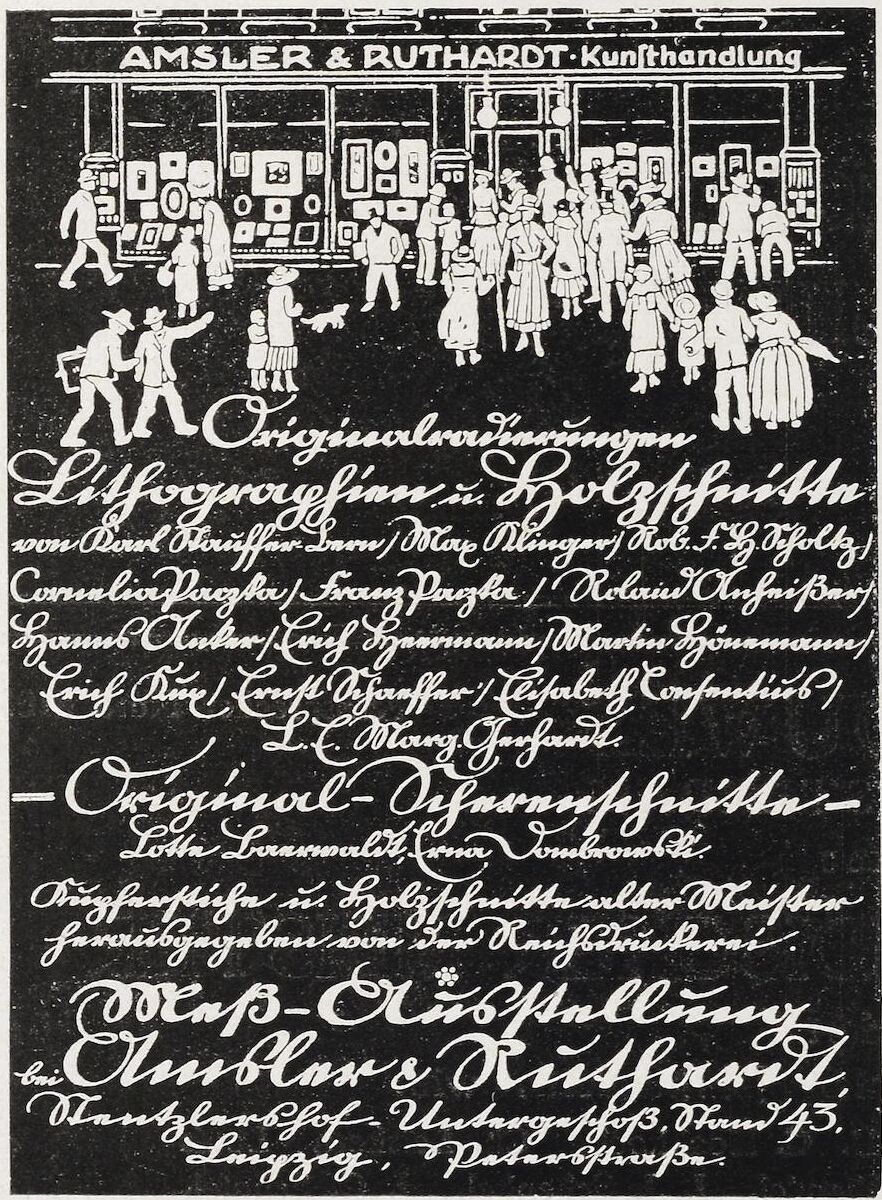 AMSLER & RUTHARDT · Kunsthandlung
Originalradierungen
Lithographien u. Holzschnitte
von Karl Stauffer-Bern / Max Klinger / Rob. F. H. Scholtz /
Cornelia Paczka / Franz Paczka / Roland Anheißer /
Hanns Anker / Erich Heermann / Martin Hönemann /
Erich Kux / Ernst Schaeffer / Elisabeth Consentius /
L. C. Marg. Gerhardt.
— Original-Scherenschnitte —
Lotte Baerwaldt, Erna Dombrowski.
Kupferstiche u. Holzschnitte alter Meister
herausgegeben von der Reichsdruckerei.
Meß-Ausstellung
bei Amsler & Ruthardt,
Stentzlershof-Untergeschoß, Stand 43,
Leipzig, Petersstraße.